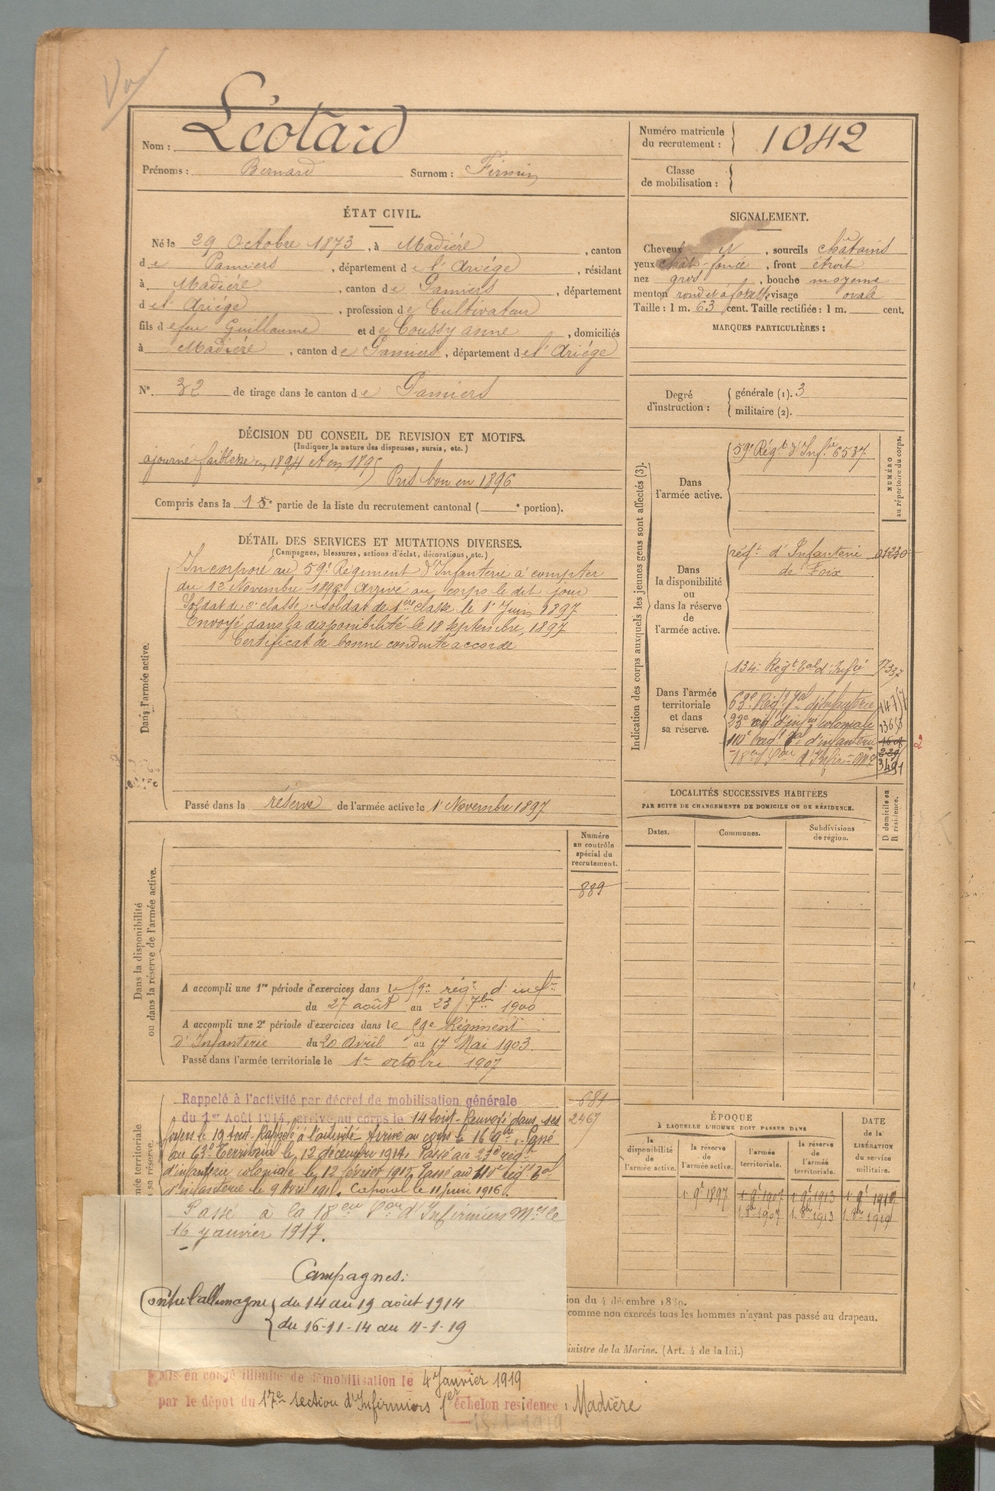 Nom : Léotard
Prénoms : Bernard Surnom : Firmin
Numéro matricule du recrutement : 1042
Classe de mobilisation :
ÉTAT CIVIL.
Né le 29 Octobre 1873, à Madière, canton
de Pamiers, département de l'Ariége, résidant
à Madiére, canton de Pamiers, département
d l'Ariége, profession de Cultivateur
fils de feu Guillaume et de Coussy anne, domiciliés
à Madiére, canton de Pamiers, département de l'Ariége
N° 32 de tirage dans le canton de Pamiers
SIGNALEMENT.
Cheveux et, sourcils châtains
yeux chât-foncé, front étroit
nez gros, bouche moyenne
menton rond et à fossette visage ovale
Taille : 1 m. 63 cent. Taille rectifiée : 1 m. cent.
MARQUES PARTICULIÈRES :
Degré d'instruction : générale (1). 3
militaire (2).
DÉCISION DU CONSEIL DE REVISION ET MOTIFS.
(Indiquer la nature des dispenses, sursis, etc.)
ajourné faiblesse en 1894 et en 1895
Pris bon en 1896
Compris dans la 1e partie de la liste du recrutement cantonal ( e portion).
DÉTAIL DES SERVICES ET MUTATIONS DIVERSES.
(Campagnes, blessures, actions d'éclat, décorations, etc.)
Dans l'armée active.
Incorporé au 59e Régiment d'Infanterie à compter
du 13 Novembre 1896 Arrivé au corps le dit jour
Soldat de 2e classe. Soldat de 1ere classe le 1er Juin 1897
Envoyé dans la disponibilité le 18 septembre 1897
Certificat de bonne conduite accordé
Passé dans la réserve de l'armée active le 1er Novembre 1897
Indication des corps auxquels les jeunes gens sont affectés (3).
NUMÉRO au répertoire du corps.
Dans l'armée active.
59e Régt d'Infie 6537
Dans la disponibilité ou dans la réserve de l'armée active.
régt d'Infanterie 01230
de Foix
Dans l'armée territoriale et dans sa réserve.
134e Régt Eal d'Infie
63e Régt Tal d'infanterie
23e reg d'infie coloniale
110e reg Tal d'infanterie
18e son d'Infirm Mres 3491
2
LOCALITÉS SUCCESSIVES HABITÉES
PAR SUITE DE CHANGEMENTS DE DOMICILE OU DE RÉSIDENCE.
Dates.
Communes.
Subdivisions de région.
D domicile ou R résidence.
Dans la disponibilité ou dans la réserve de l'armée active.
Numéro au contrôle spécial du recrutement.
889
A accompli une 1re période d'exercices dans le 59e régt d'infie
du 27 août au 23 7bre 1900
A accompli une 2e période d'exercices dans le 59e Régiment
D'Infanterie du 20 Avril au 17 Mai 1903.
Passé dans l'armée territoriale le 1er octobre 1907
Rappelé à l'activité par décret de mobilisation générale 681
du 1er Août 1914, arrivé au corps le 14 août. Renvoyé dans ses 2467
foyers le 19 août. Rappelé à l'activité. Arrivé au corps le 16 9bre. Passé
au 63e Territorial le 12 décembre 1914. Passé au 23e régt
d'infanterie coloniale le 12 février 1915. Passé au 110e regt Tal
d'infanterie le 9 1916. Caporal le 11 juin 1916.
Passé à la 18eme Son d'Infirmiers Mres le
16 janvier 1917.
Campagnes :
Contre l'allemagne du 14 au 19 août 1914
du 16-11-14 au 4-1-19
ÉPOQUE
À LAQUELLE L'HOMME DOIT PASSER DANS
la disponibilité de l'armée active.
la réserve de l'armée active.
l'armée territoriale.
la réserve de l'armée territoriale.
DATE de la LIBÉRATION du service militaire.
1 9e 1897 1 9e 1907 1 9e 1913 1 9e 1919
1 8bre 1907 1 8bre 1913 1 8bre 1919
ion du 4 décembre 1889.
comme non exercés tous les hommes n'ayant pas passé au drapeau.
inistre de la Marine. (Art. 4 de la loi.)
Mis en congé illimité de démobilisation le 4 Janvier 1919
par le dépot du 17e section d'Infirmiers 1er échelon residence : Madière